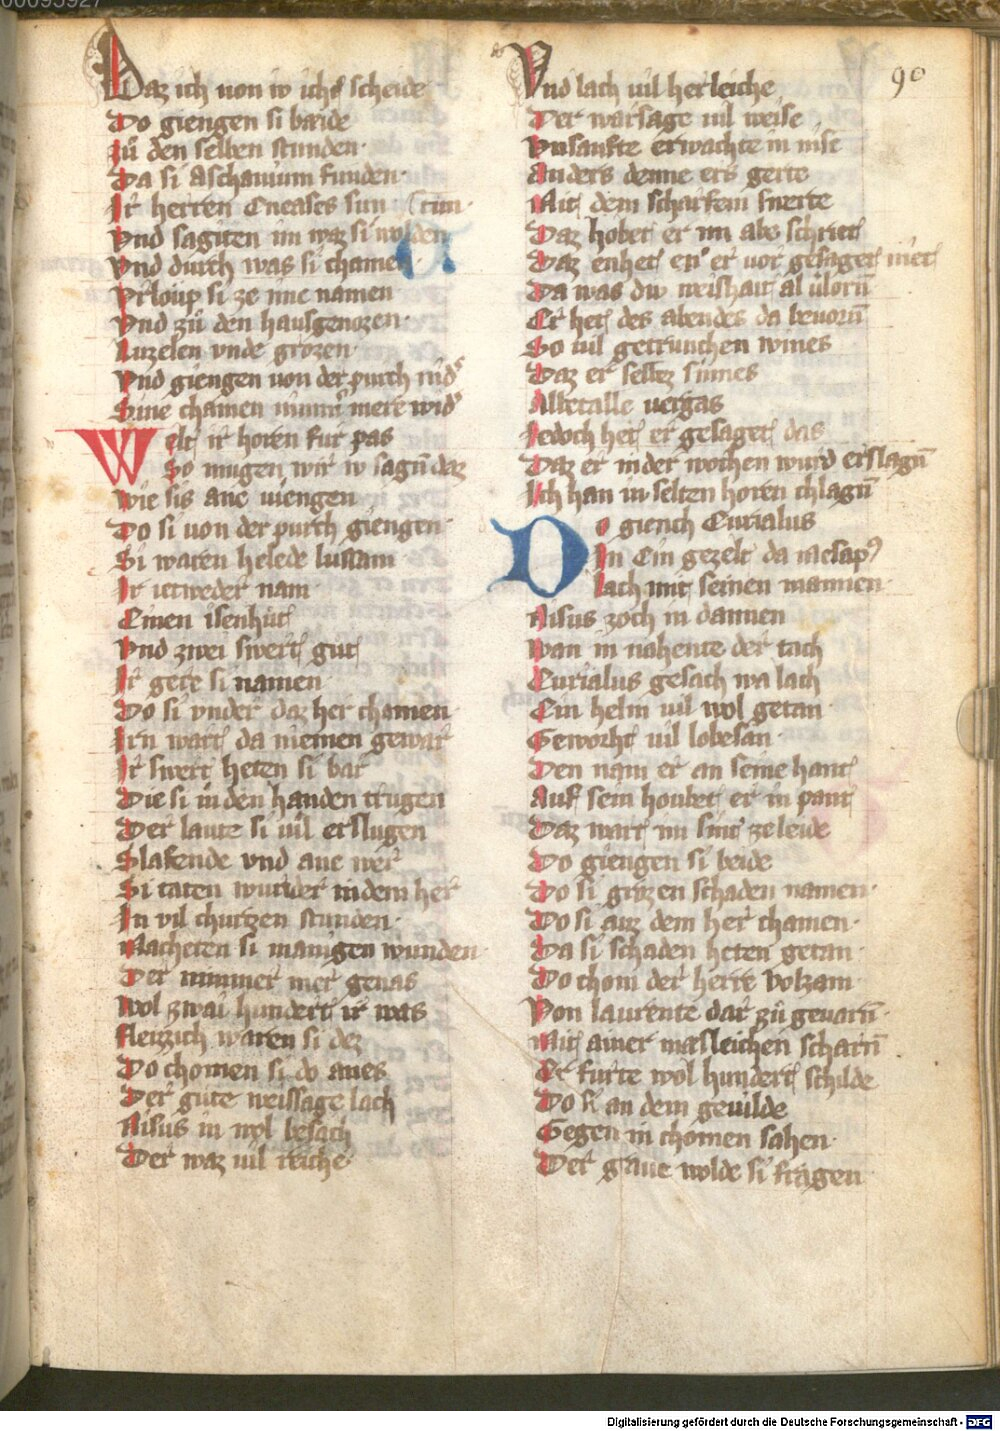 Daz ich von iv ichs scheide
Do giengen si baide
zů den selben stunden·
Da si Aschanium funden·
Ir herren Eneases sun
Vnd sagten im waz si wolden
Vnd durch was si chamen·
Vrloup si ze ime namen
Vnd zů den hausgenozen·
Luzelen vnde grozen·
Vnd giengen von der purch nider
Sine chamen nimmer mere wider
Welt ir horen fur pas
So mugen wir iv sagen daz
Wie sis ane viengen
Do si von der purch giengen·
Si waren helede lussam
Ir ietweder nam·
Einen isenhůt
Vnd zwei swert gut
Ir gere si namen·
Do si vnder daz her chamen·
Irn wart da niemen gewar
Ir swert heten si bar
Die si in den handen trugen
Der laute si vil erslugen
Slafende vnd ane wer
Si taten wunder in dem her
In vil churtzen stunden·
Macheten si manigen wunden·
Der nimmer mer genas
Wol zwai hundert ir was
Fleizzich waren si dez
Do chomen si do anes
Der gůte weissage lach
Nisus in wol besach
Der waz vil reiche·
Vnd lach vil herleiche
90
Der warsage vil weise
Vnsanfte erwachte in nise
Anders denne ers gerte
Mit dem scharfem swerte
Daz hobet er im abe schriet
Daz enhet en er vor gesaget niet
Da was div weishait al verlorn
Er het des abendes da beuorn
So vil getrunchen wines
Daz er selbez sinnes
Alletalle vergas
Iedoch het er gesaget das
Daz er in der wochen wurd erslagen
Ich han iv selten horen chlagen
Do giench Curialus
In Ein gezelt da mesapus
lach mit seinen mannen·
Nisus zoch in dannen
Wan in nahente der tach
Curialus gesach wa lach
Ein helm vil wol getan·
Geworht vil lobesan·
Den nam er an seine hant
Auf sein houbet er in pant
Daz wart im sint ze leide
Do giengen si beide
Do si grozen schaden namen·
Do si auz dem her chamen·
Da si schaden heten getan·
Do chom der herre Volzam·
Von laurente dar zů geuarn·
Mit ainer mæsleichen scharn
Er furte wol hundert schilde
Do si an dem geuilde
Gegen in chomen sahen·
Der graue wolde si fragen
Digitalisierung gefördert durch die Deutsche Forschungsgemeinschaft - DFG